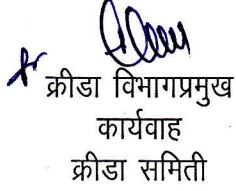 क्रीडा विभागप्रमुख
कार्यवाह
क्रीडा समिती